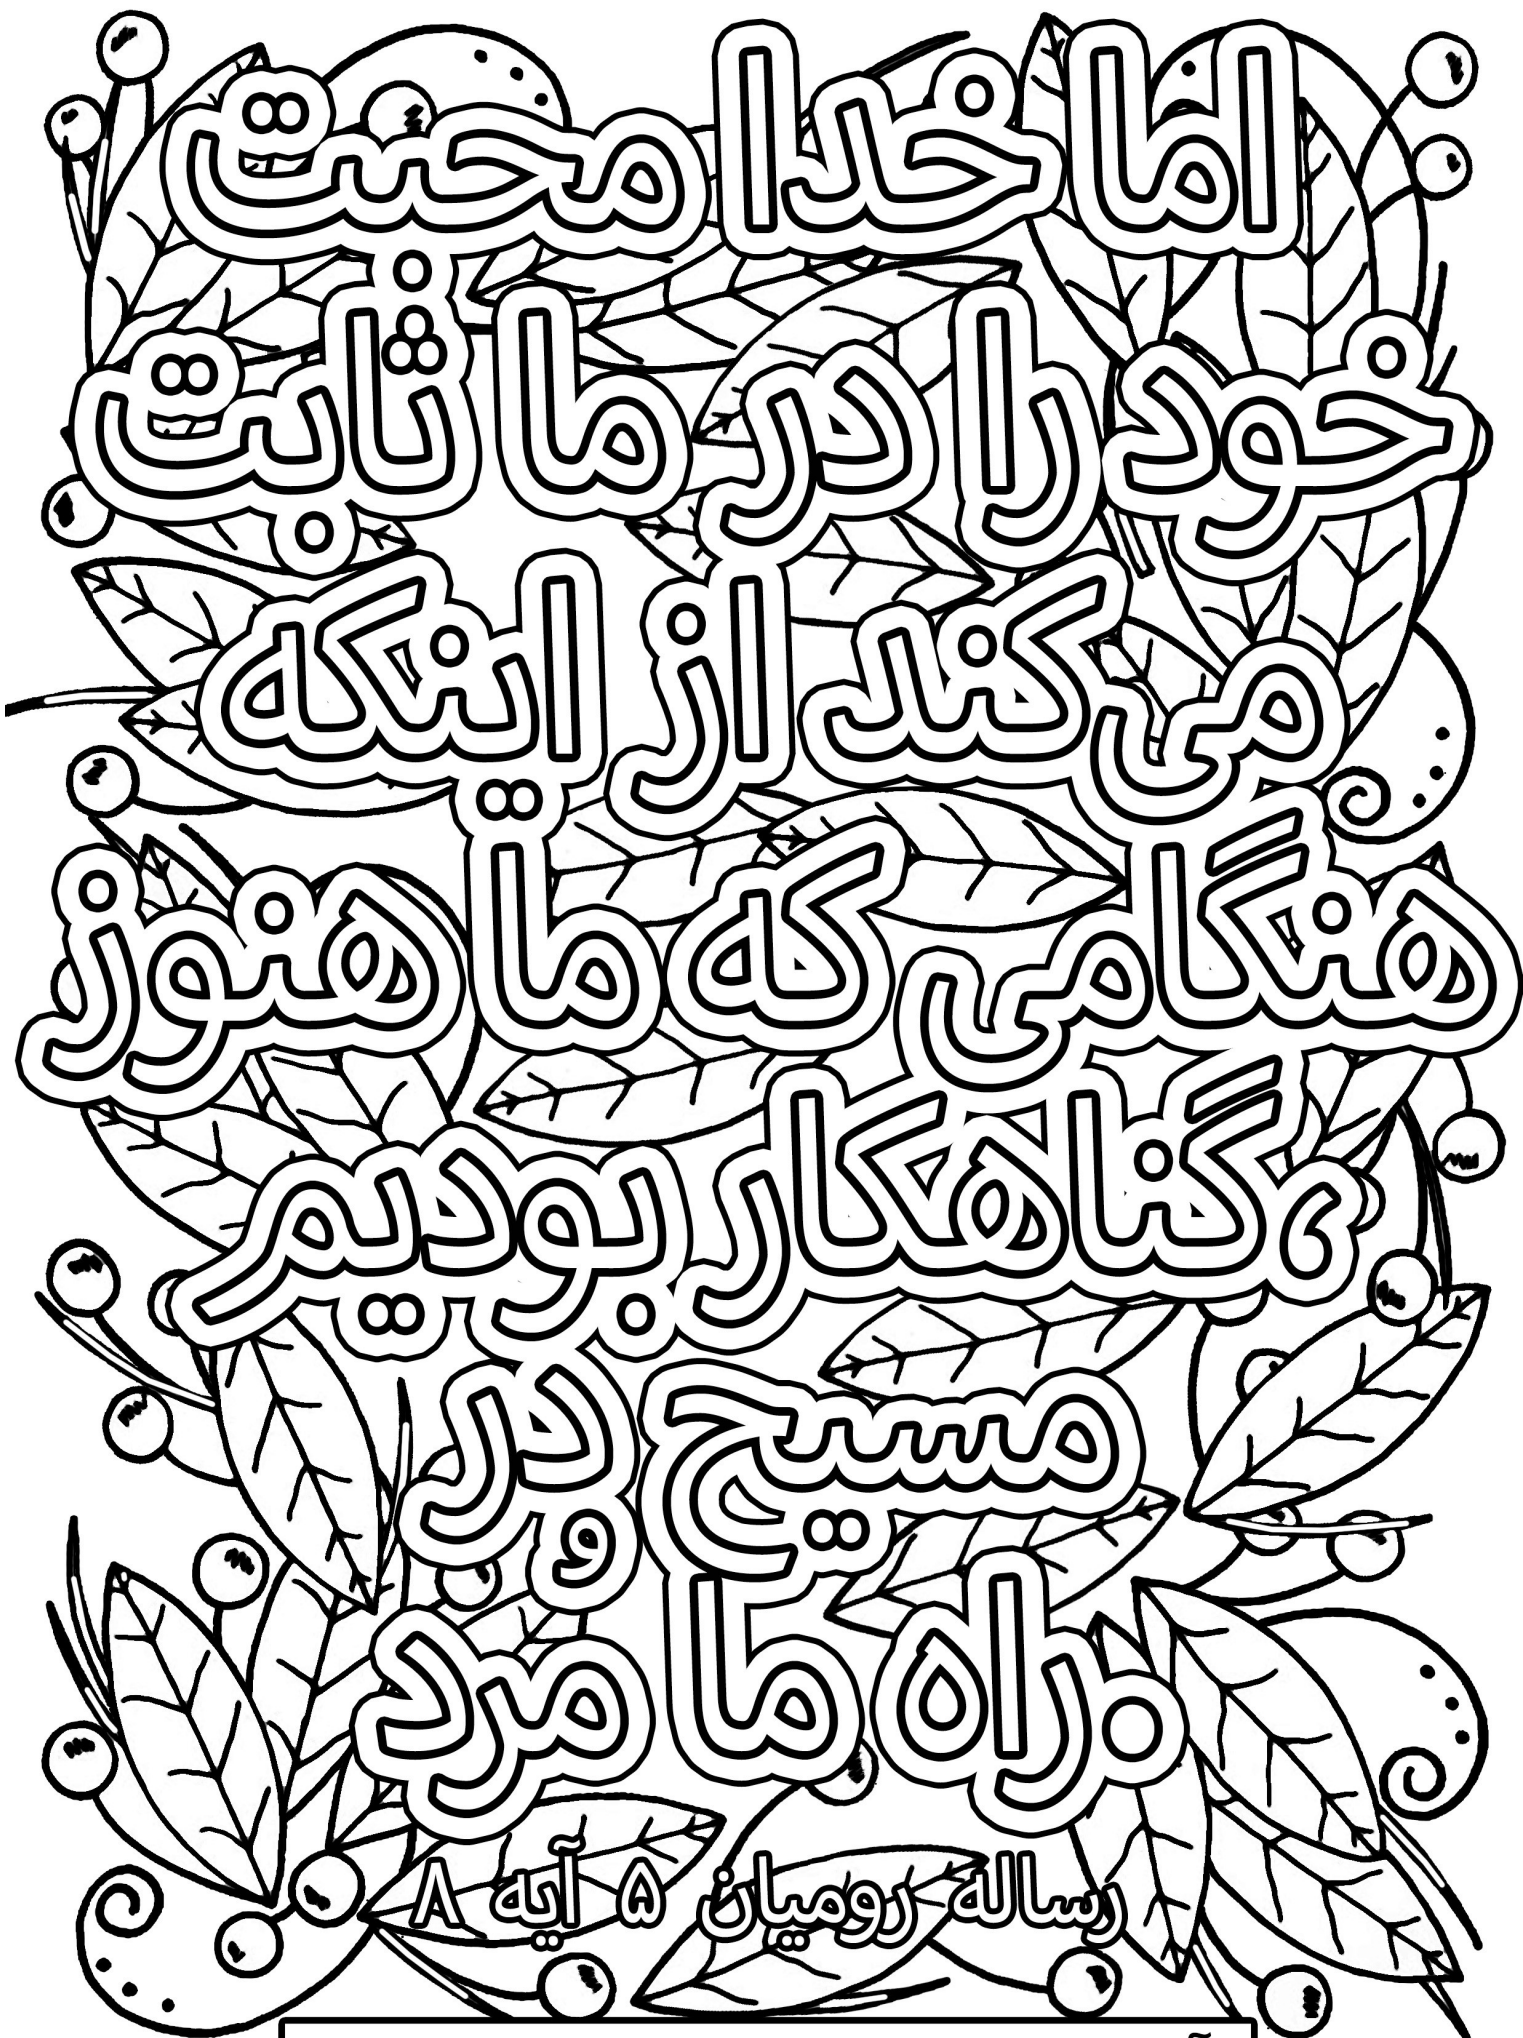 اما خدا محبت
خود را در ما ثابت
می کند از اینکه
هنگامی که ما هنوز
گناهکار بودیم،
مسیح در
راه ما مرد.
رساله رومیان ۵ آیه ۸